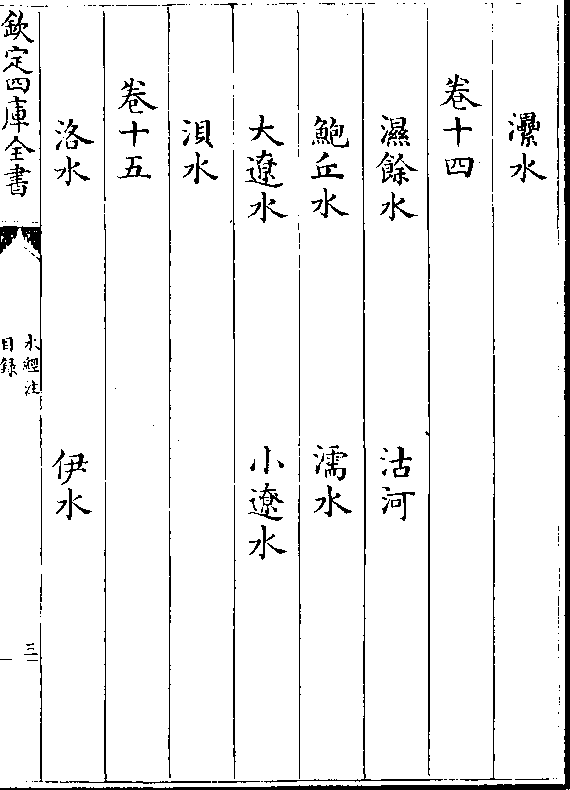 㶟水
卷十四
濕餘水　沽河
鮑丘水　濡水
大遼水　小遼水
浿水
卷十五
洛水　伊水
欽定四庫全書
水經注
目錄
三